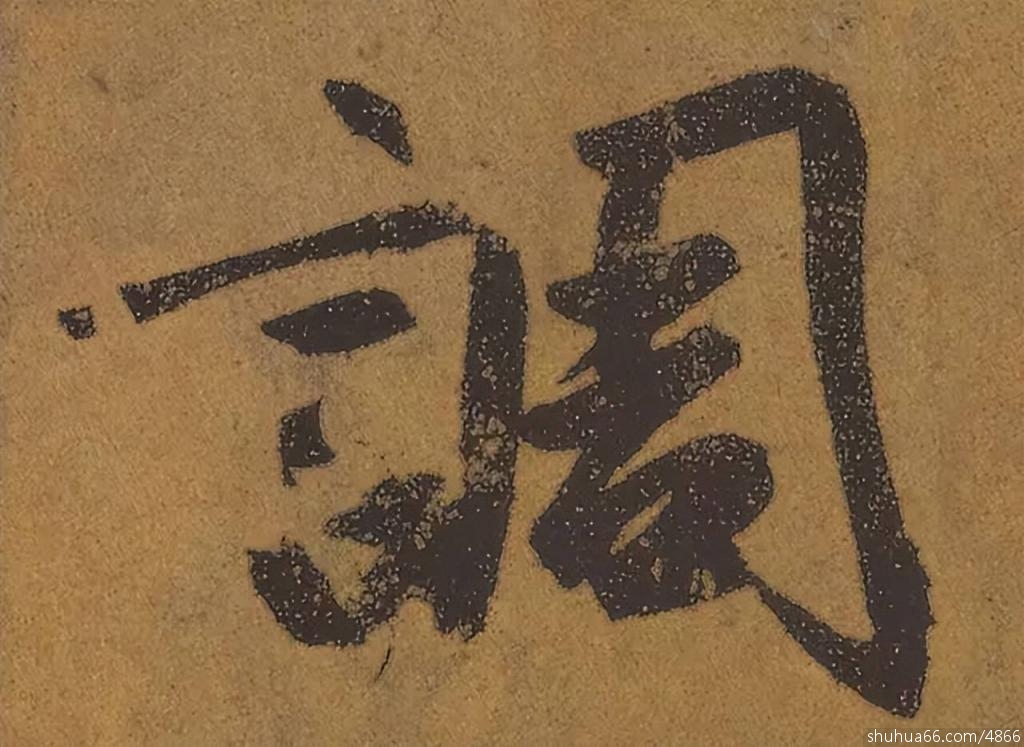 調
shuhua66.com/4866